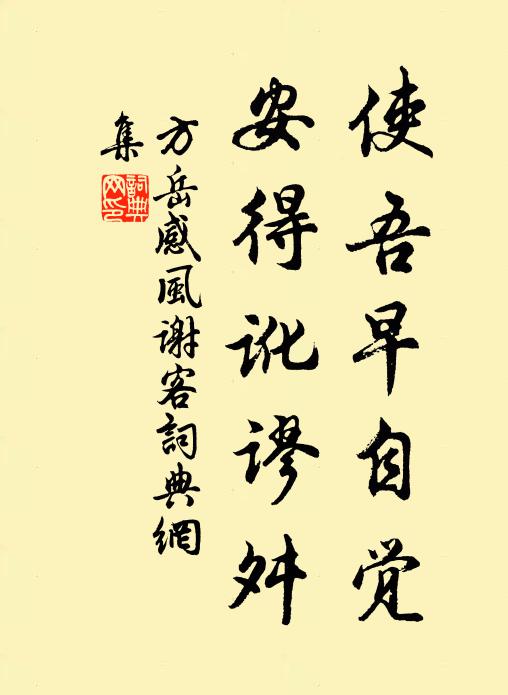 使吾早自觉
安得讹谬舛
方岳感風谢客詞典網
集
詞典
网印